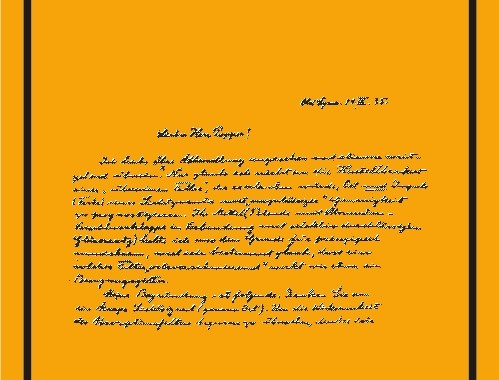 Old Lyme. 11. IX. 35.
Lieber Herr Popper!
Ich habe Ihre Abhandlung angesehen und stimme weit-
gehend überein. Nur glaube ich nicht an die Herstellbarkeit
eines „überreinen Falles", der es erlauben würde, Ort und Impuls
(Farbe) eines Lichtquants mit „unzulässiger" Genauigkeit
zu prognostizieren. Ihr Mittel (Blende mit Moment-
Verschlussklappe in Verbindung mit selektiv
Glassatz) halte ich aus dem Grunde für prinzipiell
weil ich bestimmt glaube, dass ein
solches Filter wirkt wie etwa ein
Beugungsgitter.
Meine Begründung ist folgende. Denken Sie an
ein Lichtsignal (genauer Ort). Um die Wirksamkeit
des Absorptionsfilters bequemer zu übersehen, denke ich